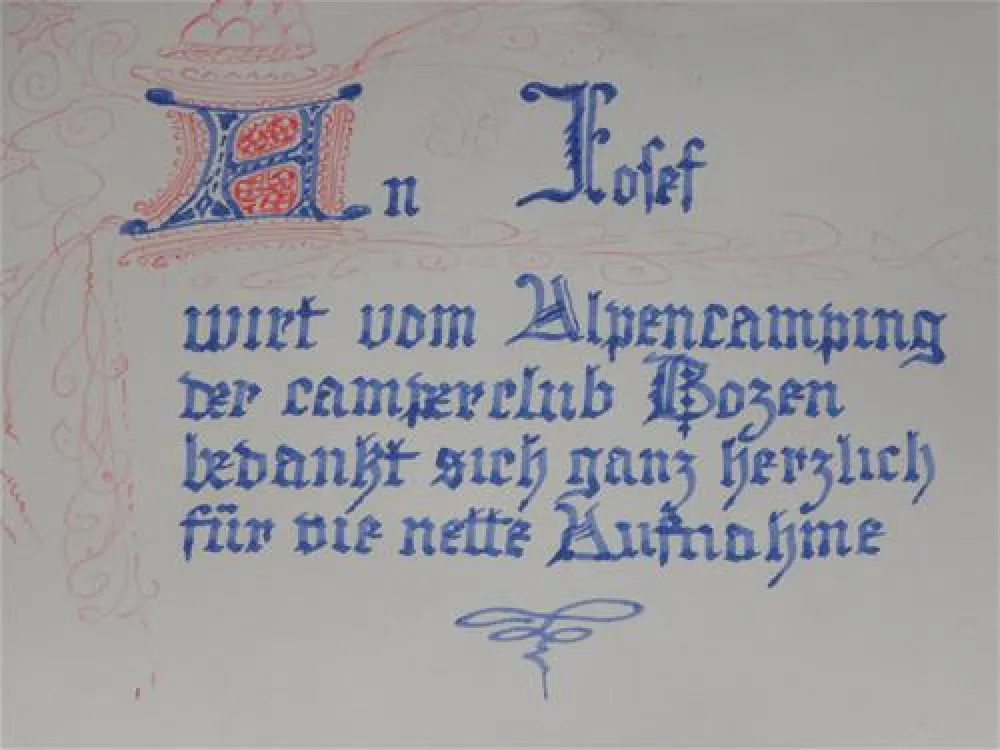 An Josef
wirt vom Alpencamping
der camperclub Bozen
bedankt sich ganz herzlich
für die nette Aufnahme